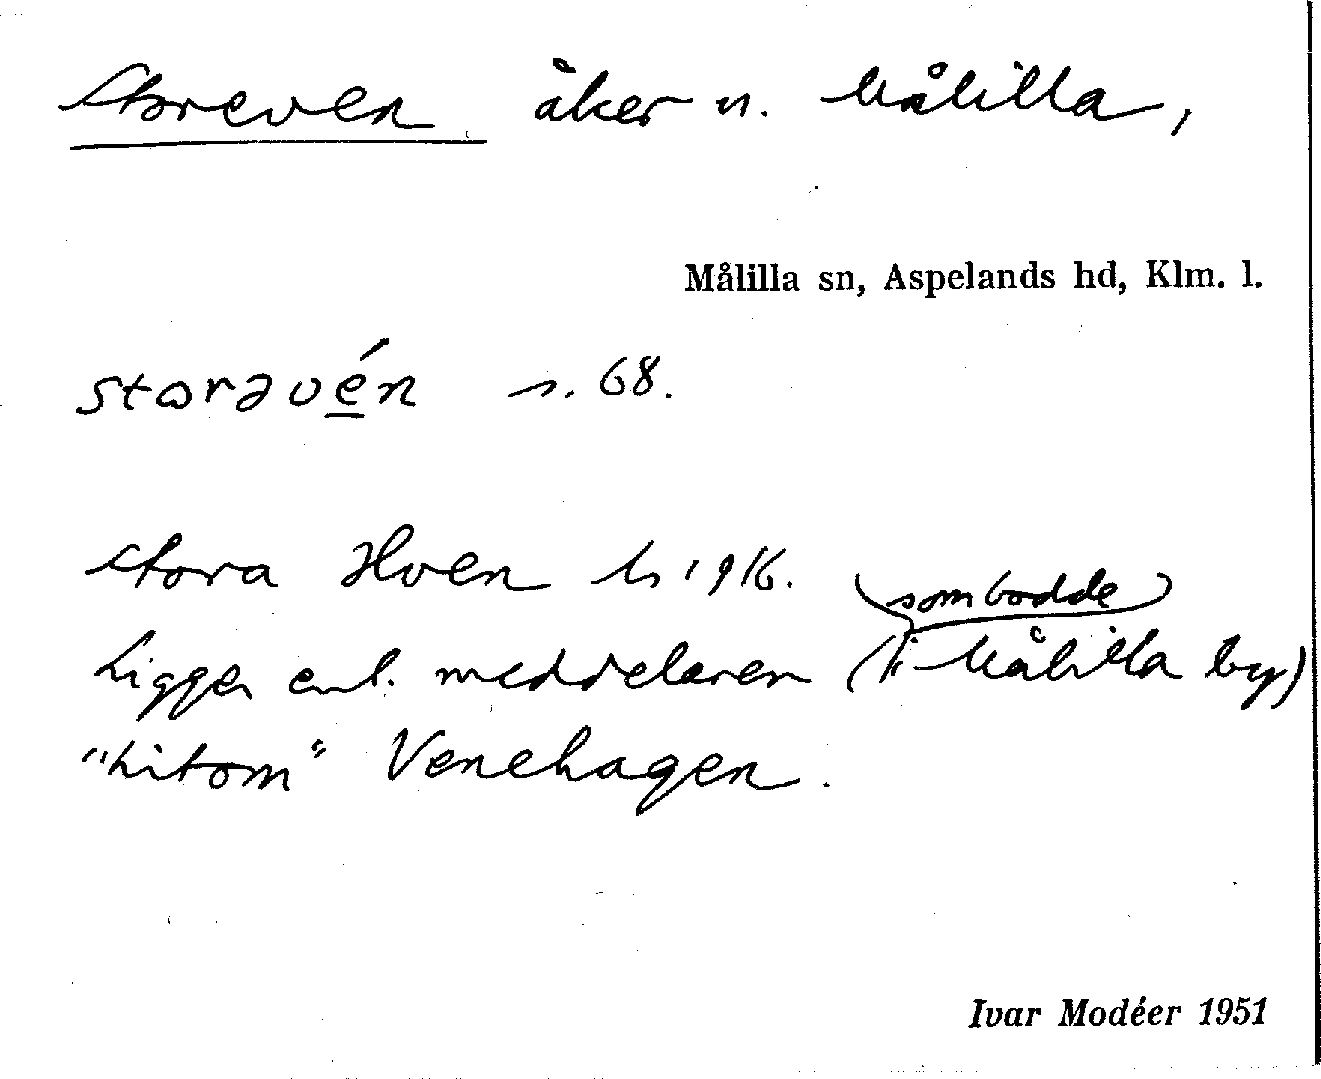 Storeven åker n. Målilla,
Målilla sn, Aspelands hd, Klm. l.
storəvén s. 68.
Stora Hven 1916.
som bodde
Ligger enl. meddelaren (i Målilla by)
"hitom" Venehagen.
Ivar Modéer 1951